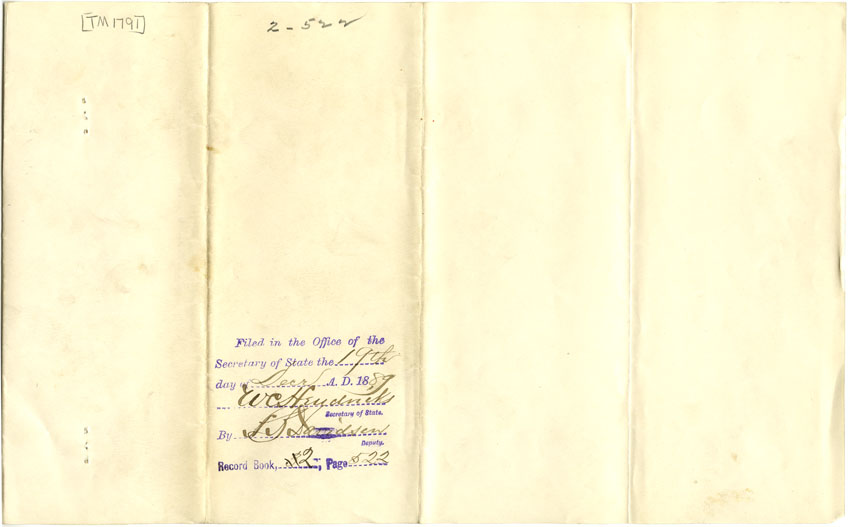 [TM 1791]
2-522
Filed in the Office of the
Secretary of State the 19th
day of Dec A. D. 1889
W C Hendricks
Secretary of State.
By Davidson
Deputy.
Record Book, 2, Page 522